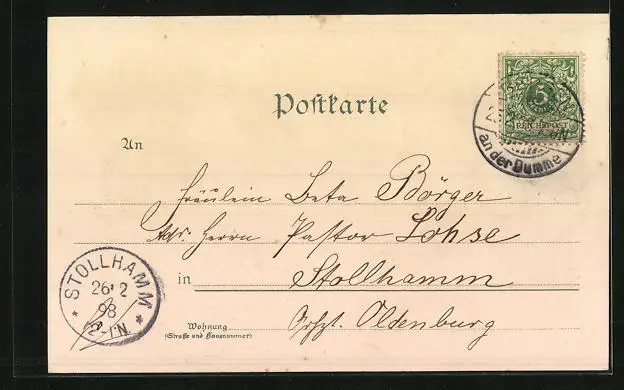 Postkarte
5
REICHSPOST
an der Dumme
An
Fräulein Beta Börger
Adr. Herrn Pastor Lohse
in Stollhamm
Wohnung
(Straße und Hausnummer)
Oldenburg
* STOLLHAMM *
26. 2
98
2-1N.